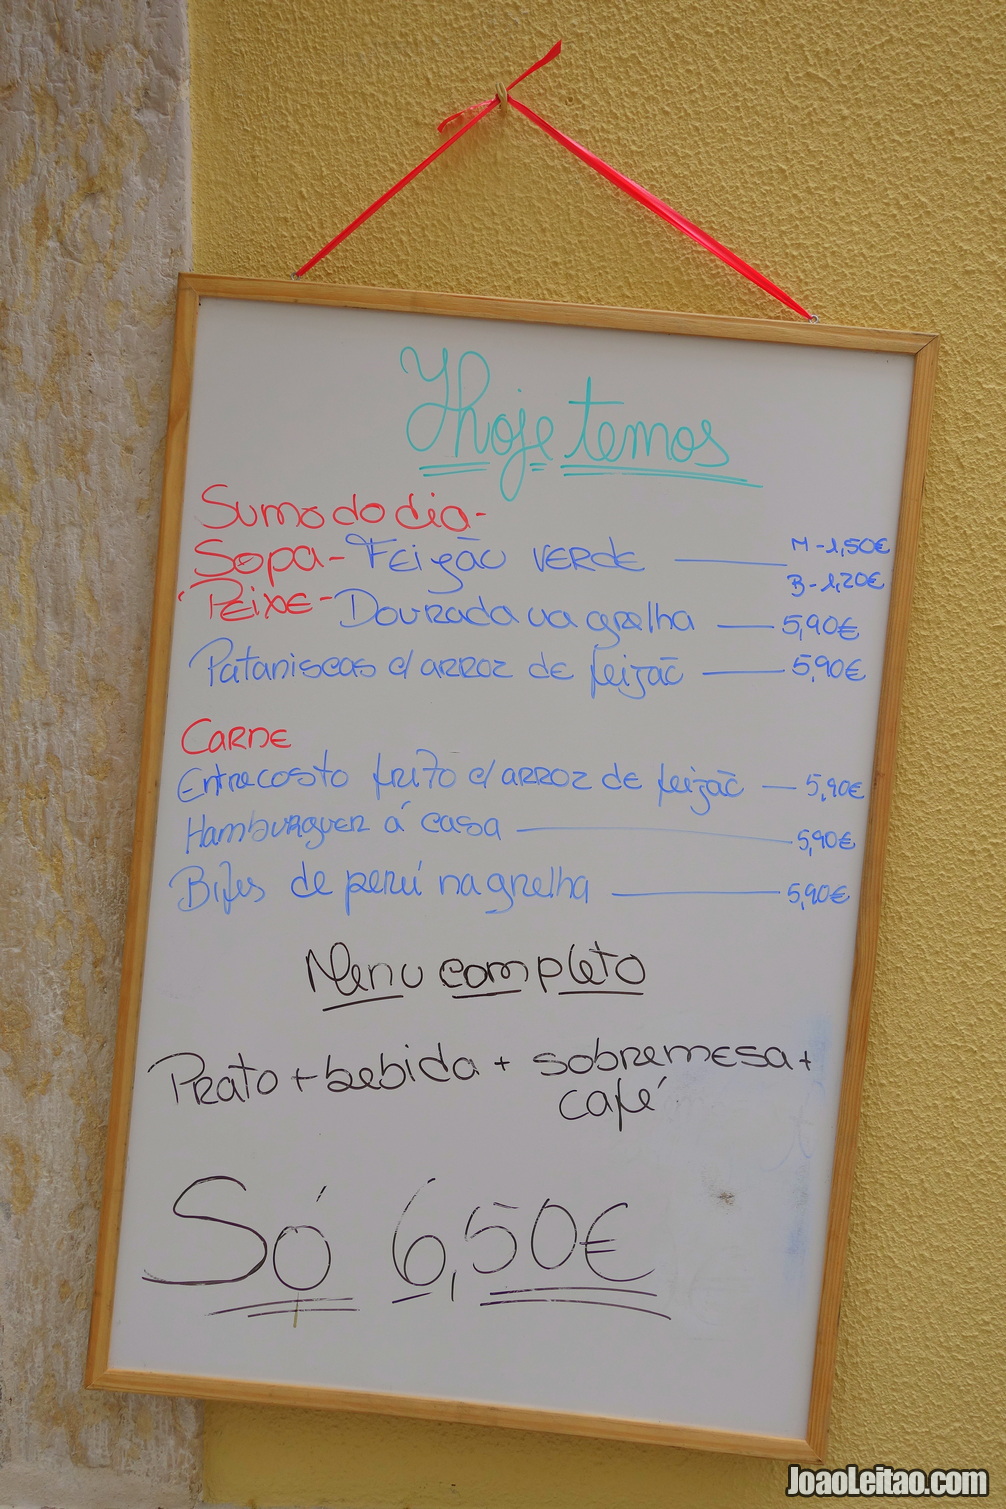 Hhoje temos
Sumo do dia-
Sopa - Feijão VERDE M - 1,50€
B - 1,20€
Peixe - Dourada na grelha 5,90€
Pataniscas c/ arroz de feijão 5,90€
Carne
Entrecosto frito c/ arroz de feijão 5,90€
Hamburguer á casa 5,90€
Bifes de perú na grelha 5,90€
Menu completo
Prato + bebida + sobremesa +
café
Só 6,50€
JoaoLeitao.com